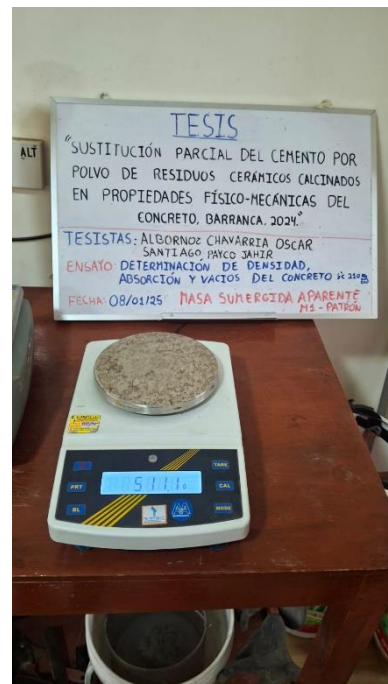 ALT
TESIS
"SUSTITUCIÓN PARCIAL DEL CEMENTO POR
POLVO DE RESIDUOS CERÁMICOS CALCINADOS
EN PROPIEDADES FÍSICO-MECÁNICAS DEL
CONCRETO, BARRANCA. 2024."
TESISTAS: ALBORNOZ CHAVARRIA OSCAR
SANTIAGO, PAYCO JAHIR
ENSAYO: DETERMINACIÓN DE DENSIDAD,
ABSORCIÓN Y VACIOS DEL CONCRETO
FECHA: 08/01/25 MASA SUMERGIDA APARENTE
M1 - PATRÓN
TARE
511.1
PRT
CAL
BL
MODE